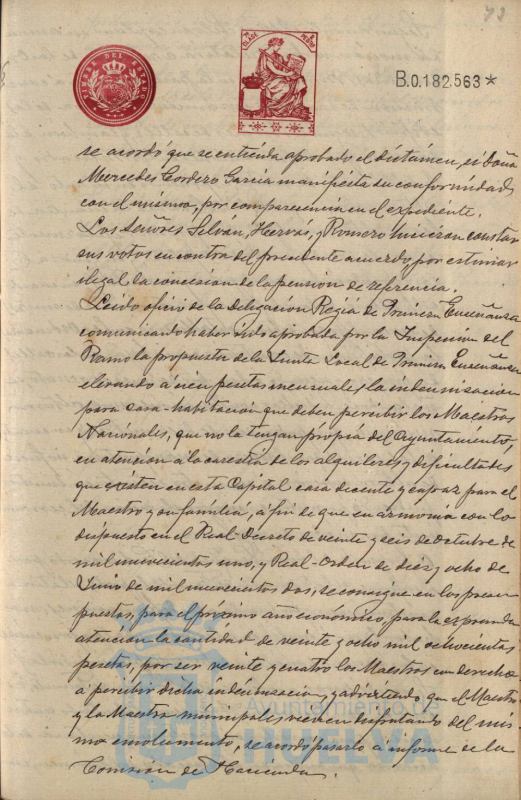 73
TIMBRE DEL ESTADO
B.0.182.563*
se acordó que se entienda aprobado el dictámen, si Doña
Mercedes Cordero Garcia manifiesta su conformidad
con el mismo, por comparecencia en el expediente.
Los Señores Selván, Hervas, y Romero hicieron constar
sus votos en contra del precedente acuerdo por estimar
ilegal la concesion de la pensión de referencia.
Leido oficio de la Delegación Regia de Primera Enseñanza
comunicando haber sido aprobada por la Inspeccion del
Ramo la propuesta de la Junta Local de Primera Enseñanza
elevando á cien pesetas mensuales la indemnizacion
para casa-habitacion que deben percibir los Maestros
Nacionales, que no la tengan propia del Ayuntamiento,
en atencion á la carestia de los alquileres y dificultades
que existen en esta Capital casa decente y capaz para el
Maestro y su família, á fin de que en armonia con lo
dispuesto en el Real-Decreto de veinte y seis de Octubre de
mil novecientos uno, y Real-Orden de diez y ocho de
Junio de mil novecientos dos, se consigne en los presu-
puestos, para el próximo año económico, para la expresada
atencion la cantidad de veinte y ocho mil ochocientas
pesetas, por ser veinte y cuatro los Maestros con derecho
á percibir dicha indemnizacion, y advirtiendo que el Maestro
y la Maestra municipales vienen disfrutando del mis-
mo emolumento, se acordó pasarlo á informe de la
Comisión de Hacienda.
Ayuntamiento de
HUELVA